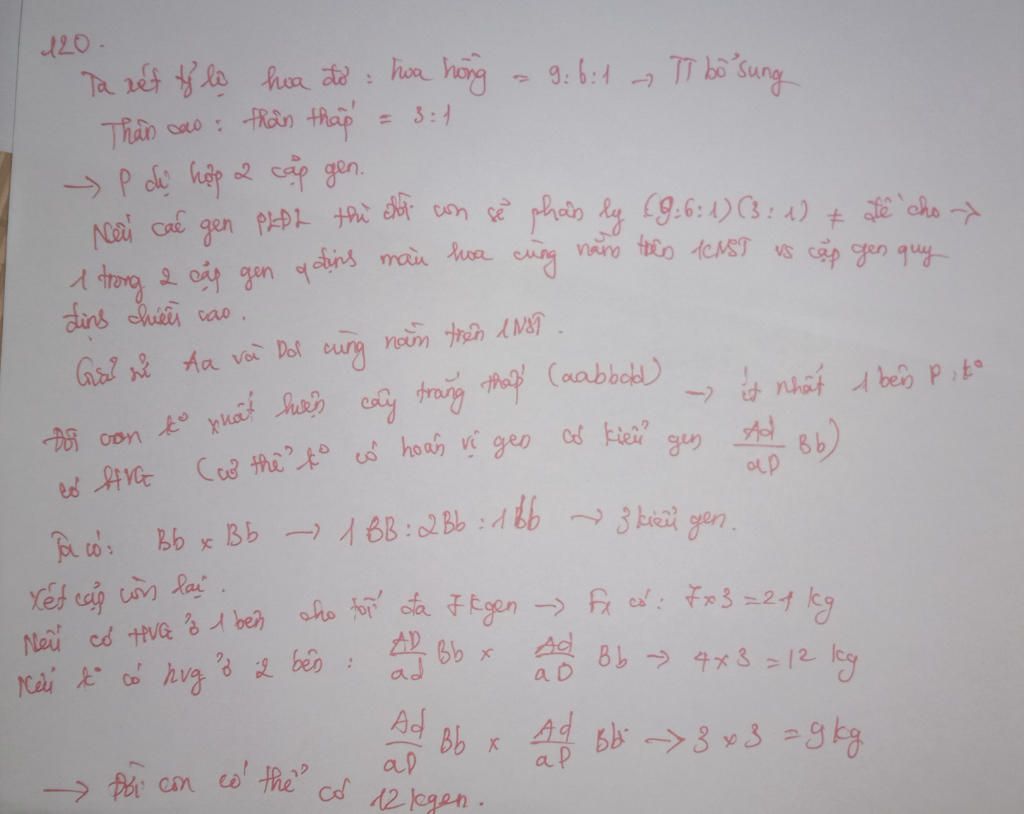 120.
Ta xét tỷ lệ hoa đỏ : hoa hồng = 9:6:1 → TT bổ sung
Thân cao : thân thấp = 3:1
→ P dị hợp 2 cặp gen.
Nếu các gen PLĐL thì đời con sẽ phân ly (9:6:1)(3:1) ≠ đề cho →
1 trong 2 cặp gen q định màu hoa cùng nằm trên 1CNST vs cặp gen quy
định chiều cao.
Giả sử Aa và Dd cùng nằm trên 1NST.
Đời con k° xuất hiện cây trắng thấp (aabbdd) → ít nhất 1 bên P k°
có HVG (cơ thể k° có hoán vị gen có kiểu gen Ad/aD Bb)
Ta có: Bb x Bb → 1BB:2Bb:1bb → 3 kiểu gen.
Xét cặp còn lại.
Nếu có HVG ở 1 bên cho tối đa 7kgen → Fx có: 7x3=21 kg
Nếu k° có hvg ở 2 bên: AD/ad Bb x Ad/aD Bb → 4x3=12 kg
Ad/aD Bb x Ad/aD Bb → 3x3=9kg
→ Đời con có thể có 12kgen.